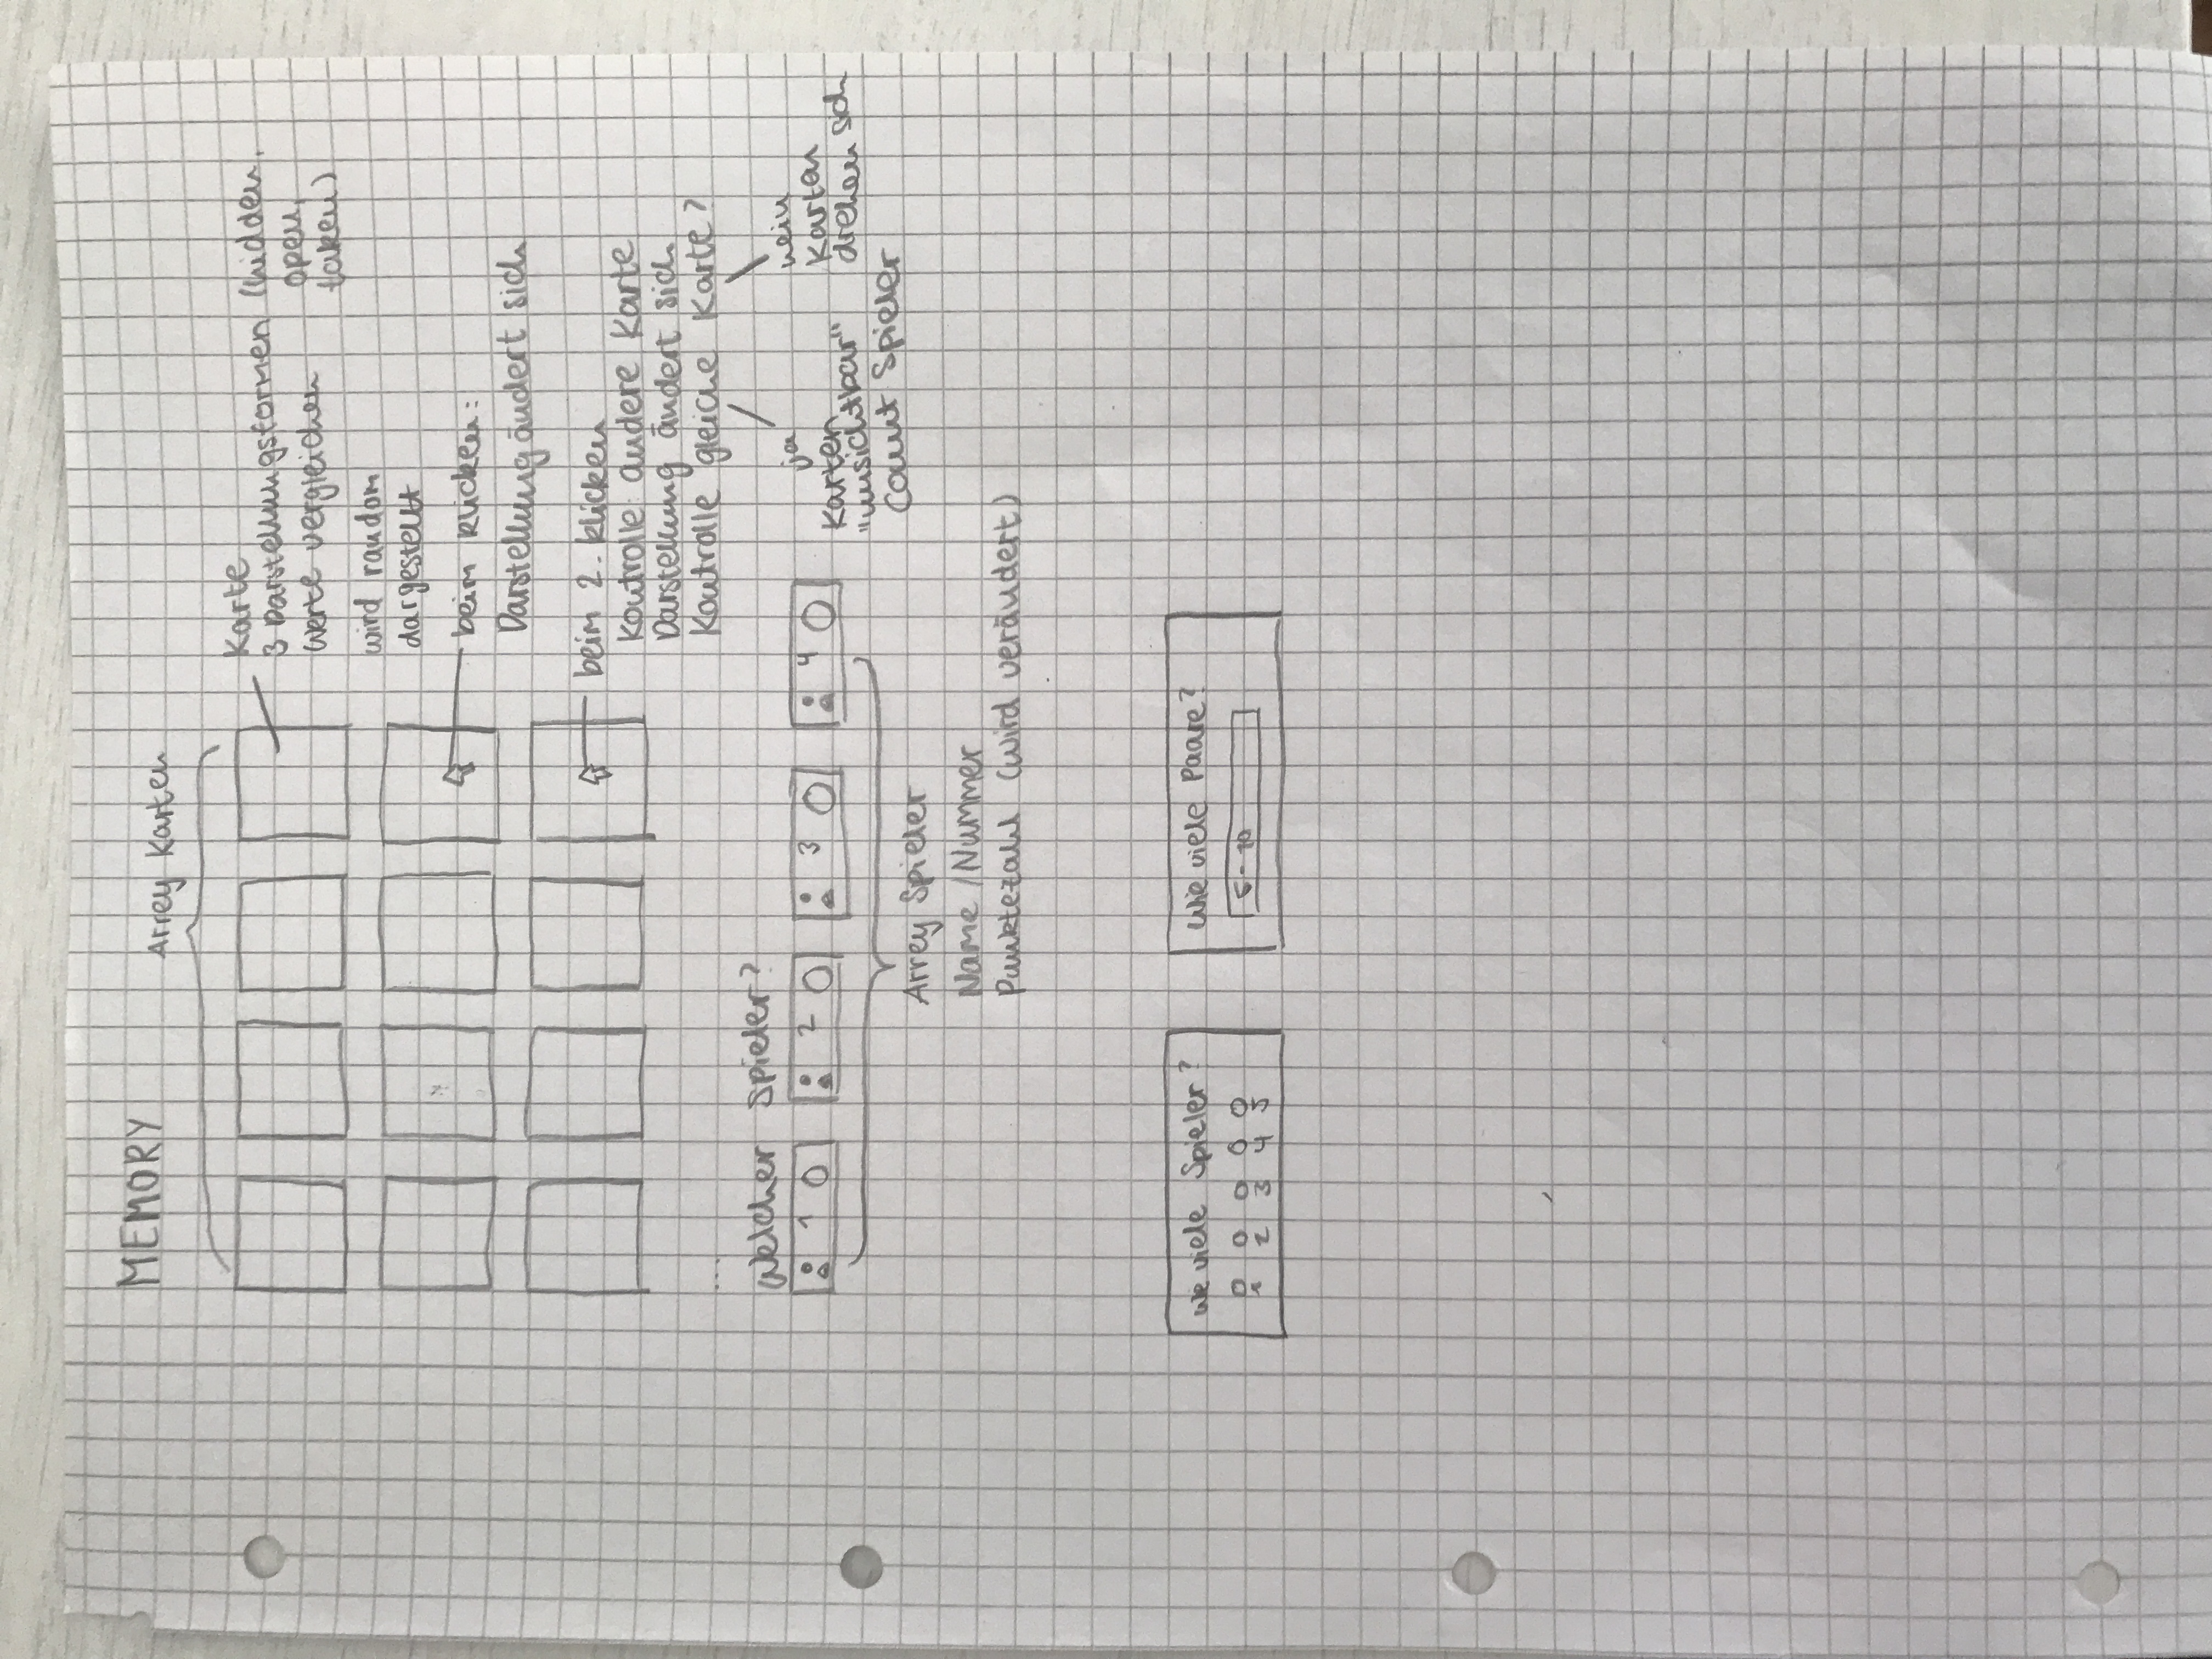 MEMORY
Arrey Karten
Karte
3 Darstellungsformen (hidden,
open,
taken)
Werte vergleichen
wird random
dargestellt
beim klicken:
Darstellung ändert sich
beim 2. klicken
Kontrolle andere Karte
Darstellung ändert sich
Kontrolle gleiche Karte?
ja
Karten
"unsichtbar"
Count Spieler
nein
Karten
drehen sich
...
Welcher Spieler?
1 2 3 4
Arrey Spieler
Name / Nummer
Punktezahl (wird verändert)
Wie viele Spieler?
1 2 3 4 5
Wie viele Paare?
5-10